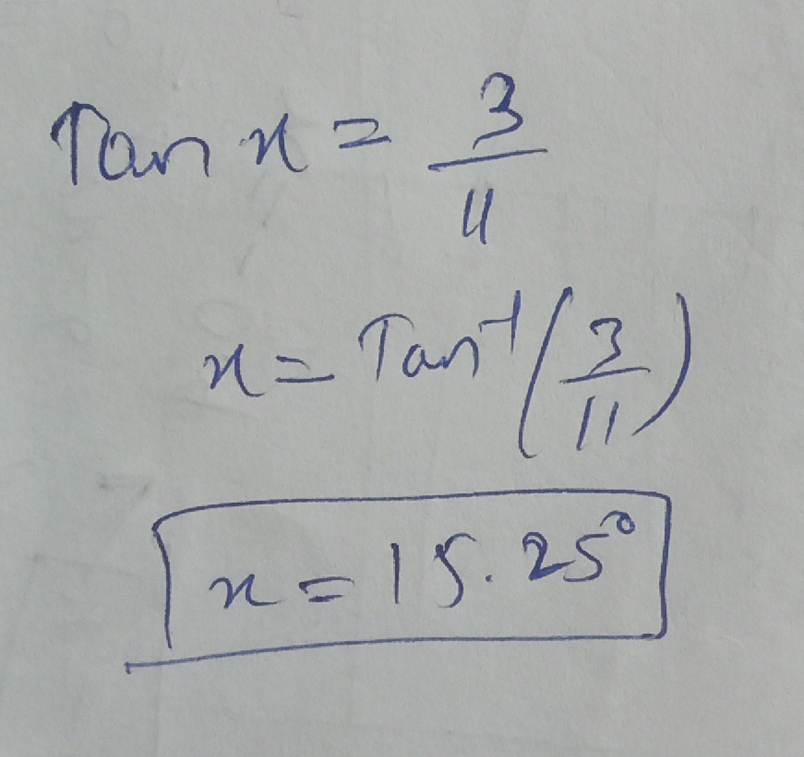 Tan x = 3/11
x = Tan⁻¹(3/11)
x = 15.25°